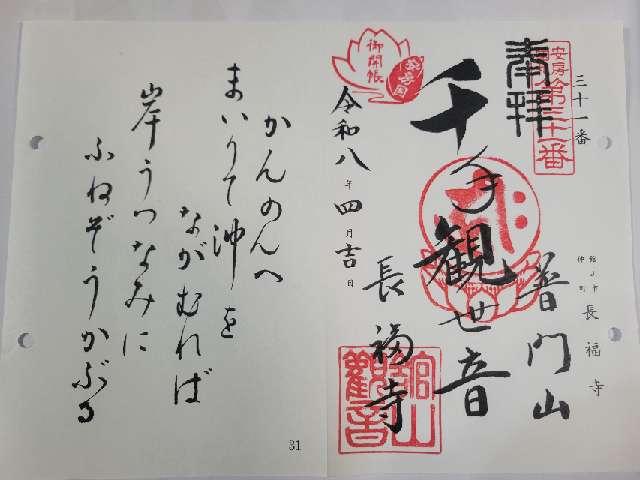 三十一番
館山市
仲町
長福寺
奉拝
安房国札第三十一番
普門山
千手観世音
御開帳
令和八年四月吉日
長福寺
館山
觀音
かんのんへ
まいりて沖を
ながむれば
岸うつなみに
ふねぞうかぶる
31